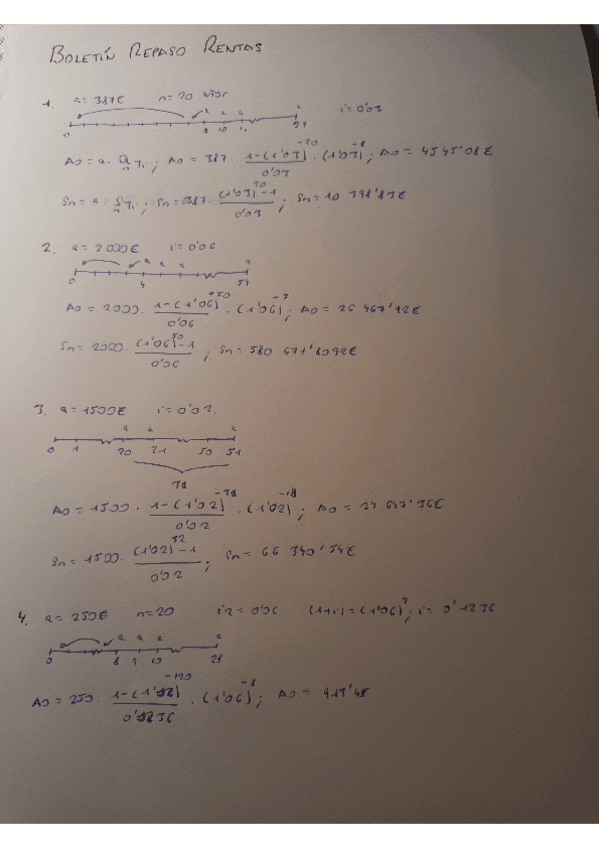 BOLETÍN REPASO RENTAS
1. a = 387€ n = 20 años i = 0'03
a a a a
0 9 10 11
A0 = a · a n¬i ; A0 = 387 · 1-(1'03)^-20 / 0'03 · (1'03)^-8 ; A0 = 4545'08€
Sn = a · S n¬i ; Sn = 387 · (1'03)^20 - 1 / 0'03 ; Sn = 10 398'83€
2. a = 2000€ i = 0'06
a a a a
0 4 54
A0 = 2000 · 1-(1'06)^-50 / 0'06 · (1'06)^-3 ; A0 = 26 467'92€
Sn = 2000 · (1'06)^50 - 1 / 0'06 ; Sn = 580 671'8092€
3. a = 1500€ i = 0'02
a a a
0 1 20 21 50 51
A0 = 1500 · 1-(1'02) / 0'02 · (1'02)^-18 ; A0 = 24 647'36€
Sn = 1500 · (1'02)^32 - 1 / 0'02 ; Sn = 66 340'54€
4. a = 250€ n = 20 i2 = 0'06 (1+i) = (1'06)^2 ; i = 0'1236
a a a a
0 8 9 10 28
A0 = 250 · / · (1'06) ; A0 =